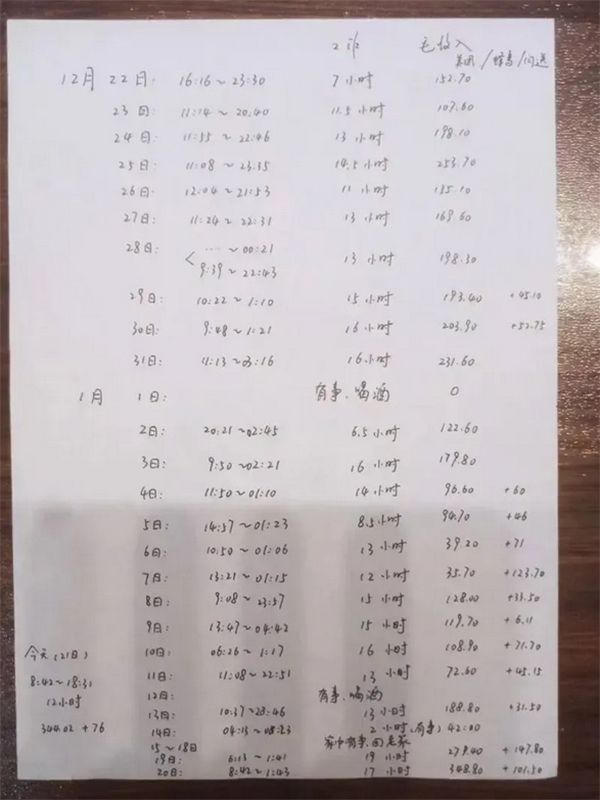 工作 毛收入
美团 / 蜂鸟 / 闪送
12月 22日: 16:16~23:30 7小时 152.70
23日: 11:14~20:40 11.5小时 107.60
24日: 11:55~22:46 13小时 198.10
25日: 11:08~23:35 14.5小时 253.70
26日: 12:04~21:53 11小时 135.10
27日: 11:24~22:31 13小时 169.60
28日: < ……~00:21
9:39~22:43 13小时 198.30
29日: 10:22~1:10 15小时 193.40 +45.10
30日: 9:48~1:21 16小时 203.90 +52.75
31日: 11:13~03:16 16小时 231.60
1月 1日: 有事、喝酒 0
2日: 20:21~02:45 6.5小时 122.60
3日: 9:50~02:21 16小时 179.80
4日: 11:50~01:10 14小时 96.60 +60
5日: 14:57~01:23 8.5小时 94.70 +46
6日: 10:50~01:06 13小时 39.20 +71
7日: 13:21~01:15 12小时 35.70 +123.70
8日: 9:08~23:57 15小时 128.00 +33.50
9日: 13:47~04:42 15小时 119.70 +6.11
10日: 06:26~1:17 16小时 108.90 +71.70
11日: 11:08~22:51 13小时 72.60 +45.15
12日: 有事、喝酒
13日: 10:37~23:46 13小时 188.80 +31.50
14日: 04:13~08:23 2小时(有事) 42.00
15~18日 家中有事,回老家
19日: 6:13~1:41 19小时 279.40 +147.80
20日: 8:42~1:43 17小时 348.80 +101.50
今天(21日)
8:42~18:31
12小时
344.02+76